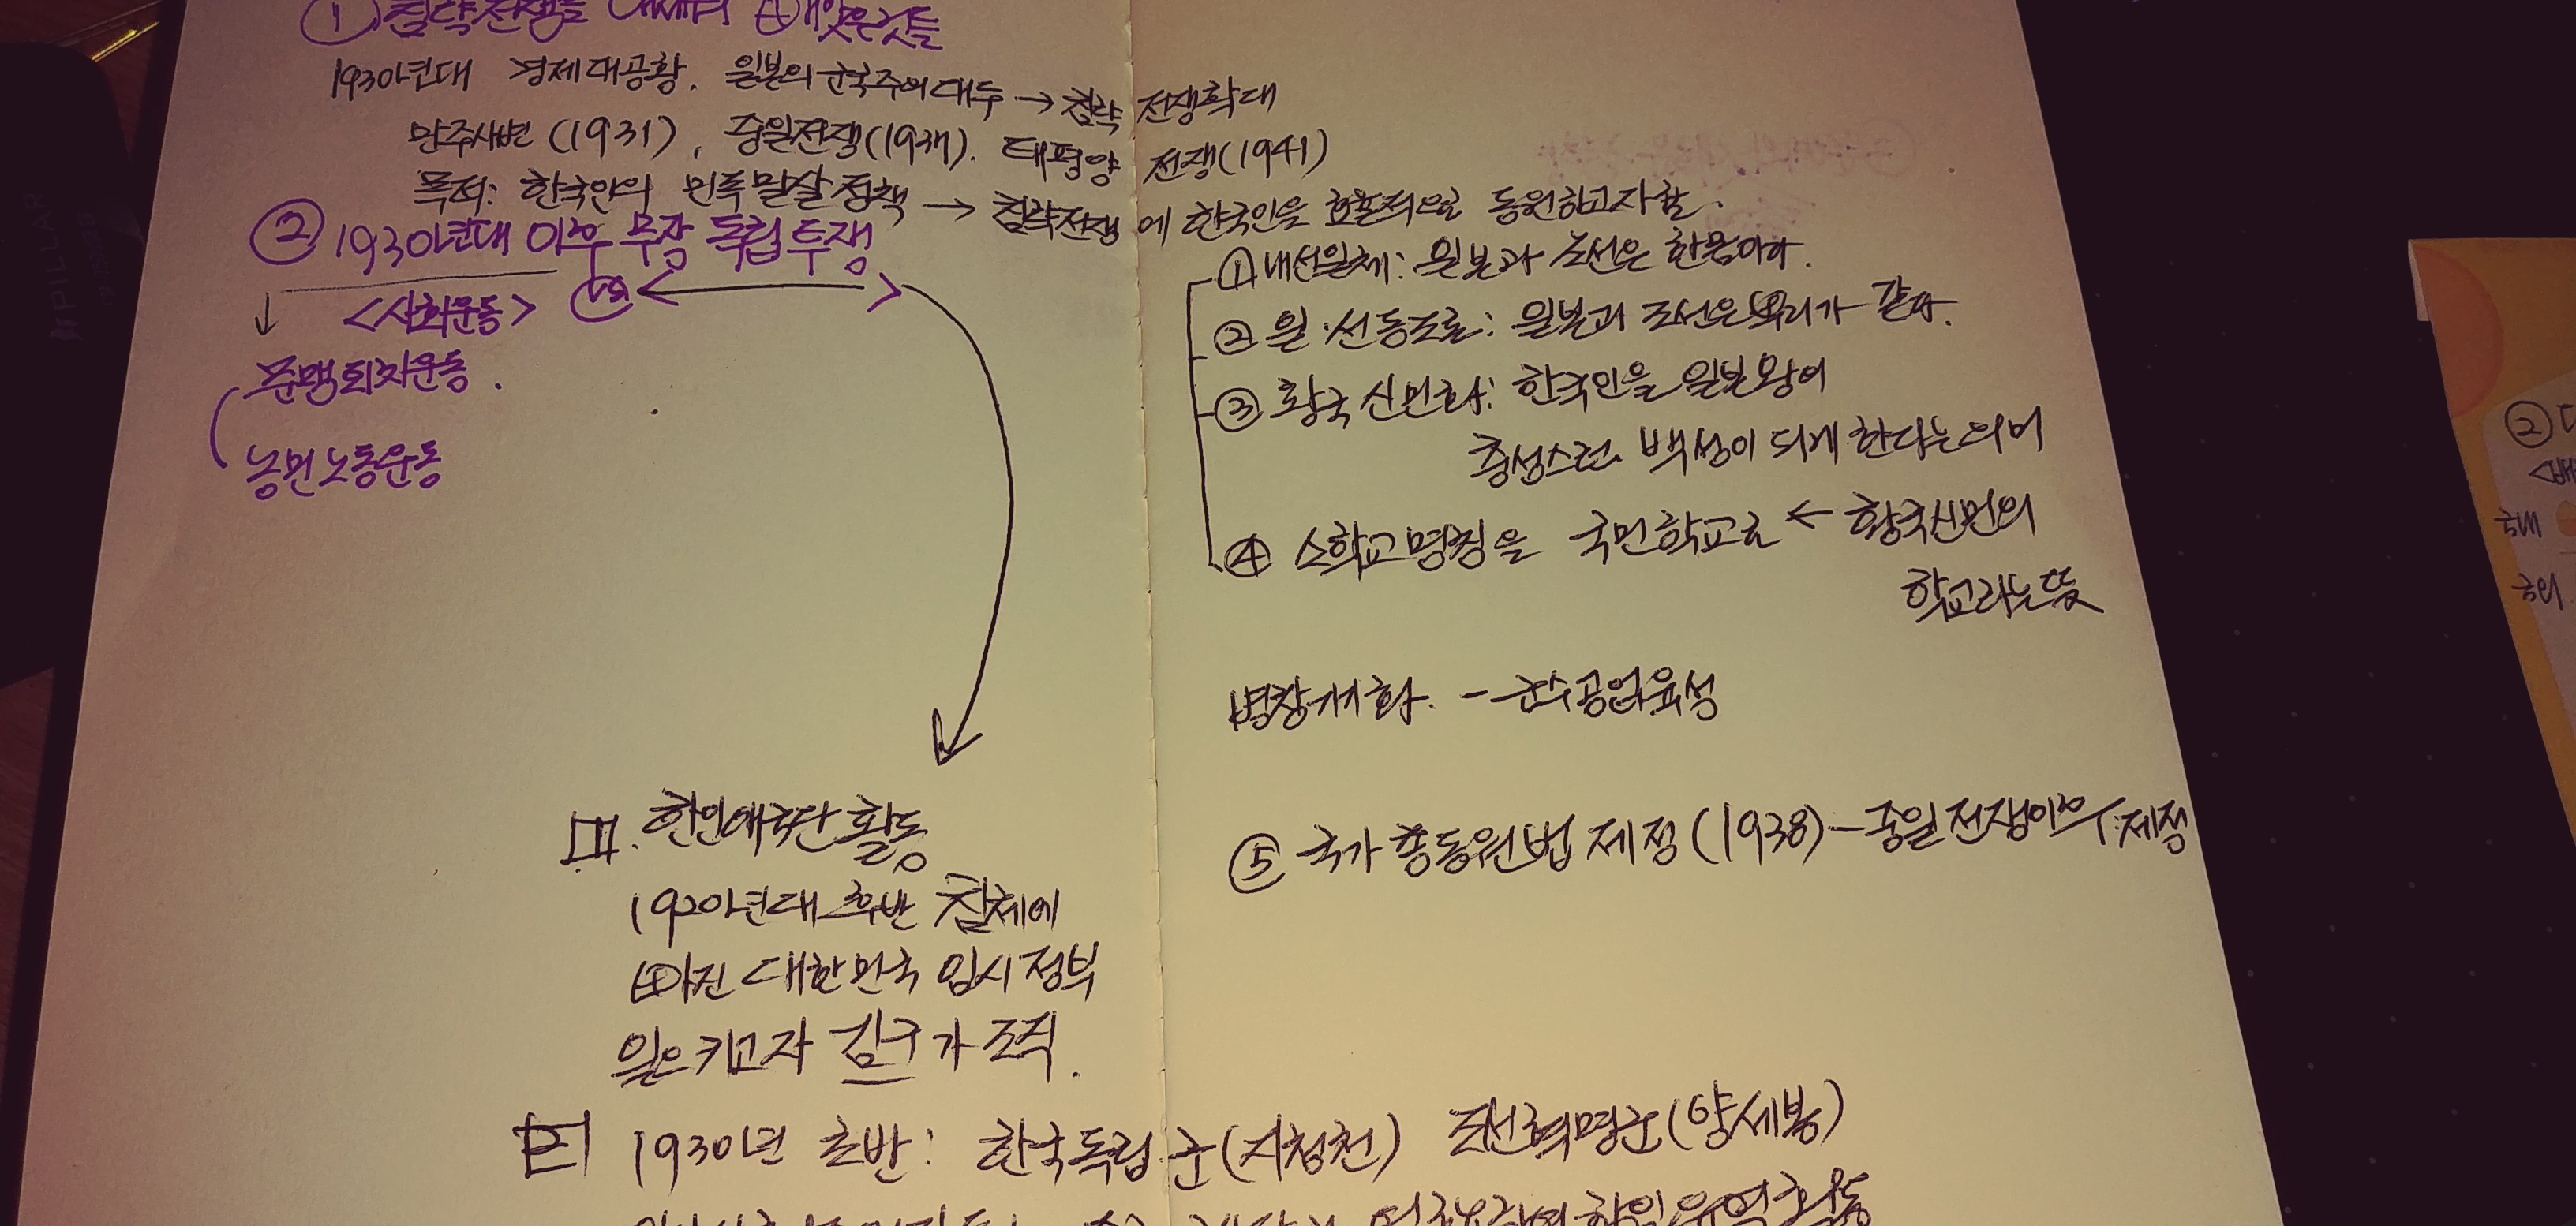 ① 침략전쟁을 내세워 빼앗은것들
1930년대 경제대공황. 일본의 군국주의 대두 → 침략 전쟁확대
만주사변 (1931), 중일전쟁(1937). 태평양 전쟁(1941)
목적: 한국인의 민족말살정책 → 침략전쟁에 한국인을 효율적으로 동원하고자함.
② 1930년대 이후 무장 독립투쟁
<사회운동>
준맹퇴치운동.
농민노동운동
① 내선일체: 일본과 조선은 한몸이다.
② 일·선동조론: 일본과 조선은 뿌리가 같다.
③ 황국신민화: 한국인을 일본왕의
충성스런 백성이 되게 한다는의미
④ 소학교명칭을 국민학교로 ← 황국신민의
학교라는뜻
병참기지화. - 군수공업육성
⑤ 국가총동원법 제정(1938) - 중일전쟁이후 제정
1. 한인애국단 활동
1920년대 후반 침체에
빠진 대한민국 임시정부
일으키고자 김구가 조직.
2 1930년 초반: 한국독립군(지청천) 조선혁명군(양세봉)
② 
국내
국외
PILLAR